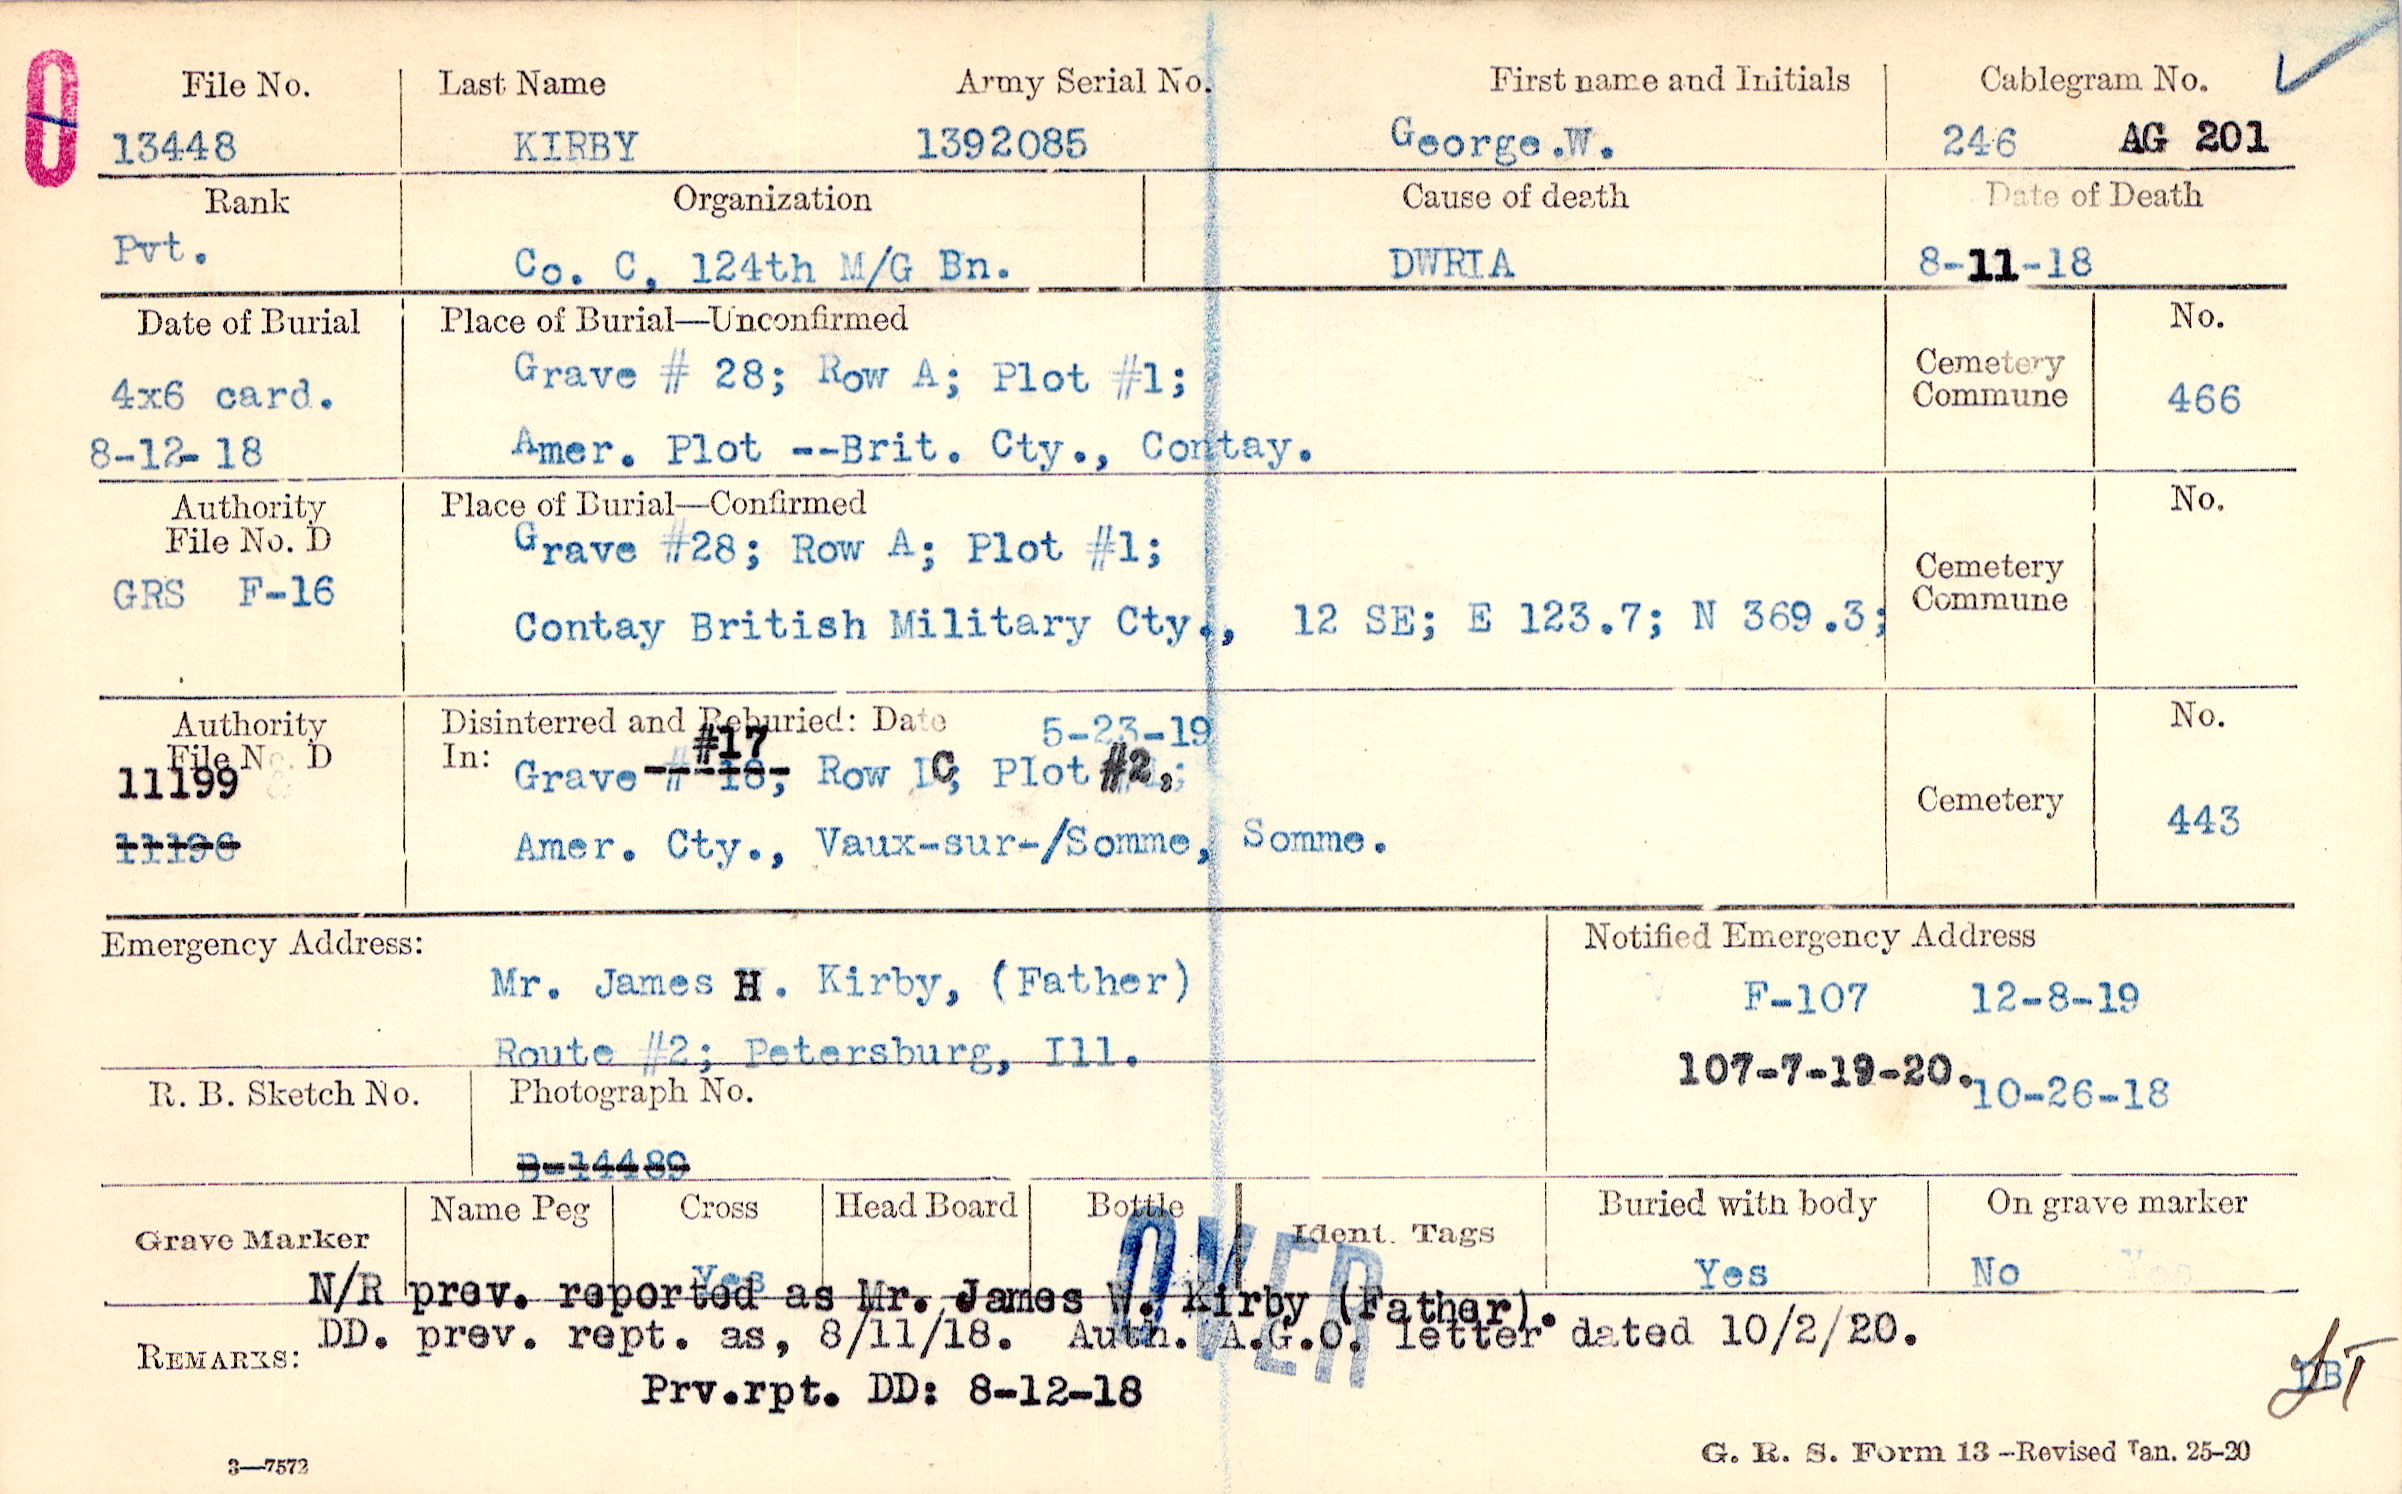 File No. Last Name Army Serial No. First name and Initials Cablegram No.
13448 KIRBY 1392085 George.W. 246 AG 201
Rank Organization Cause of death Date of Death
Pvt. Co. C, 124th M/G Bn. DWRIA 8-11-18
Date of Burial Place of Burial—Unconfirmed No.
4x6 card. Grave # 28; Row A; Plot #1; Cemetery
Commune 466
8-12-18 Amer. Plot --Brit. Cty., Contay.
Authority Place of Burial—Confirmed No.
File No. D Grave #28; Row A; Plot #1;
GRS F-16 Cemetery
Commune
Contay British Military Cty., 12 SE; E 123.7; N 369.3;
Authority Disinterred and Reburied: Date 5-23-19 No.
File No. D In: #17
11199 Grave # 18, Row 1C; Plot #2,;
11196 Amer. Cty., Vaux-sur-/Somme, Somme. Cemetery 443
Emergency Address: Notified Emergency Address
Mr. James H. Kirby, (Father) F-107 12-8-19
Route #2; Petersburg, Ill. 107-7-19-20.
R. B. Sketch No. Photograph No. 10-26-18
B-14489
Grave Marker Name Peg Cross Head Board Bottle Ident. Tags Buried with body On grave marker
Yes Yes No
OVER
N/R prev. reported as Mr. James W. Kirby (Father).
REMARKS: DD. prev. rept. as, 8/11/18. Auth. A.G.O. letter dated 10/2/20.
Prv.rpt. DD: 8-12-18
3—7572 G. R. S. Form 13 -Revised Jan. 25-20